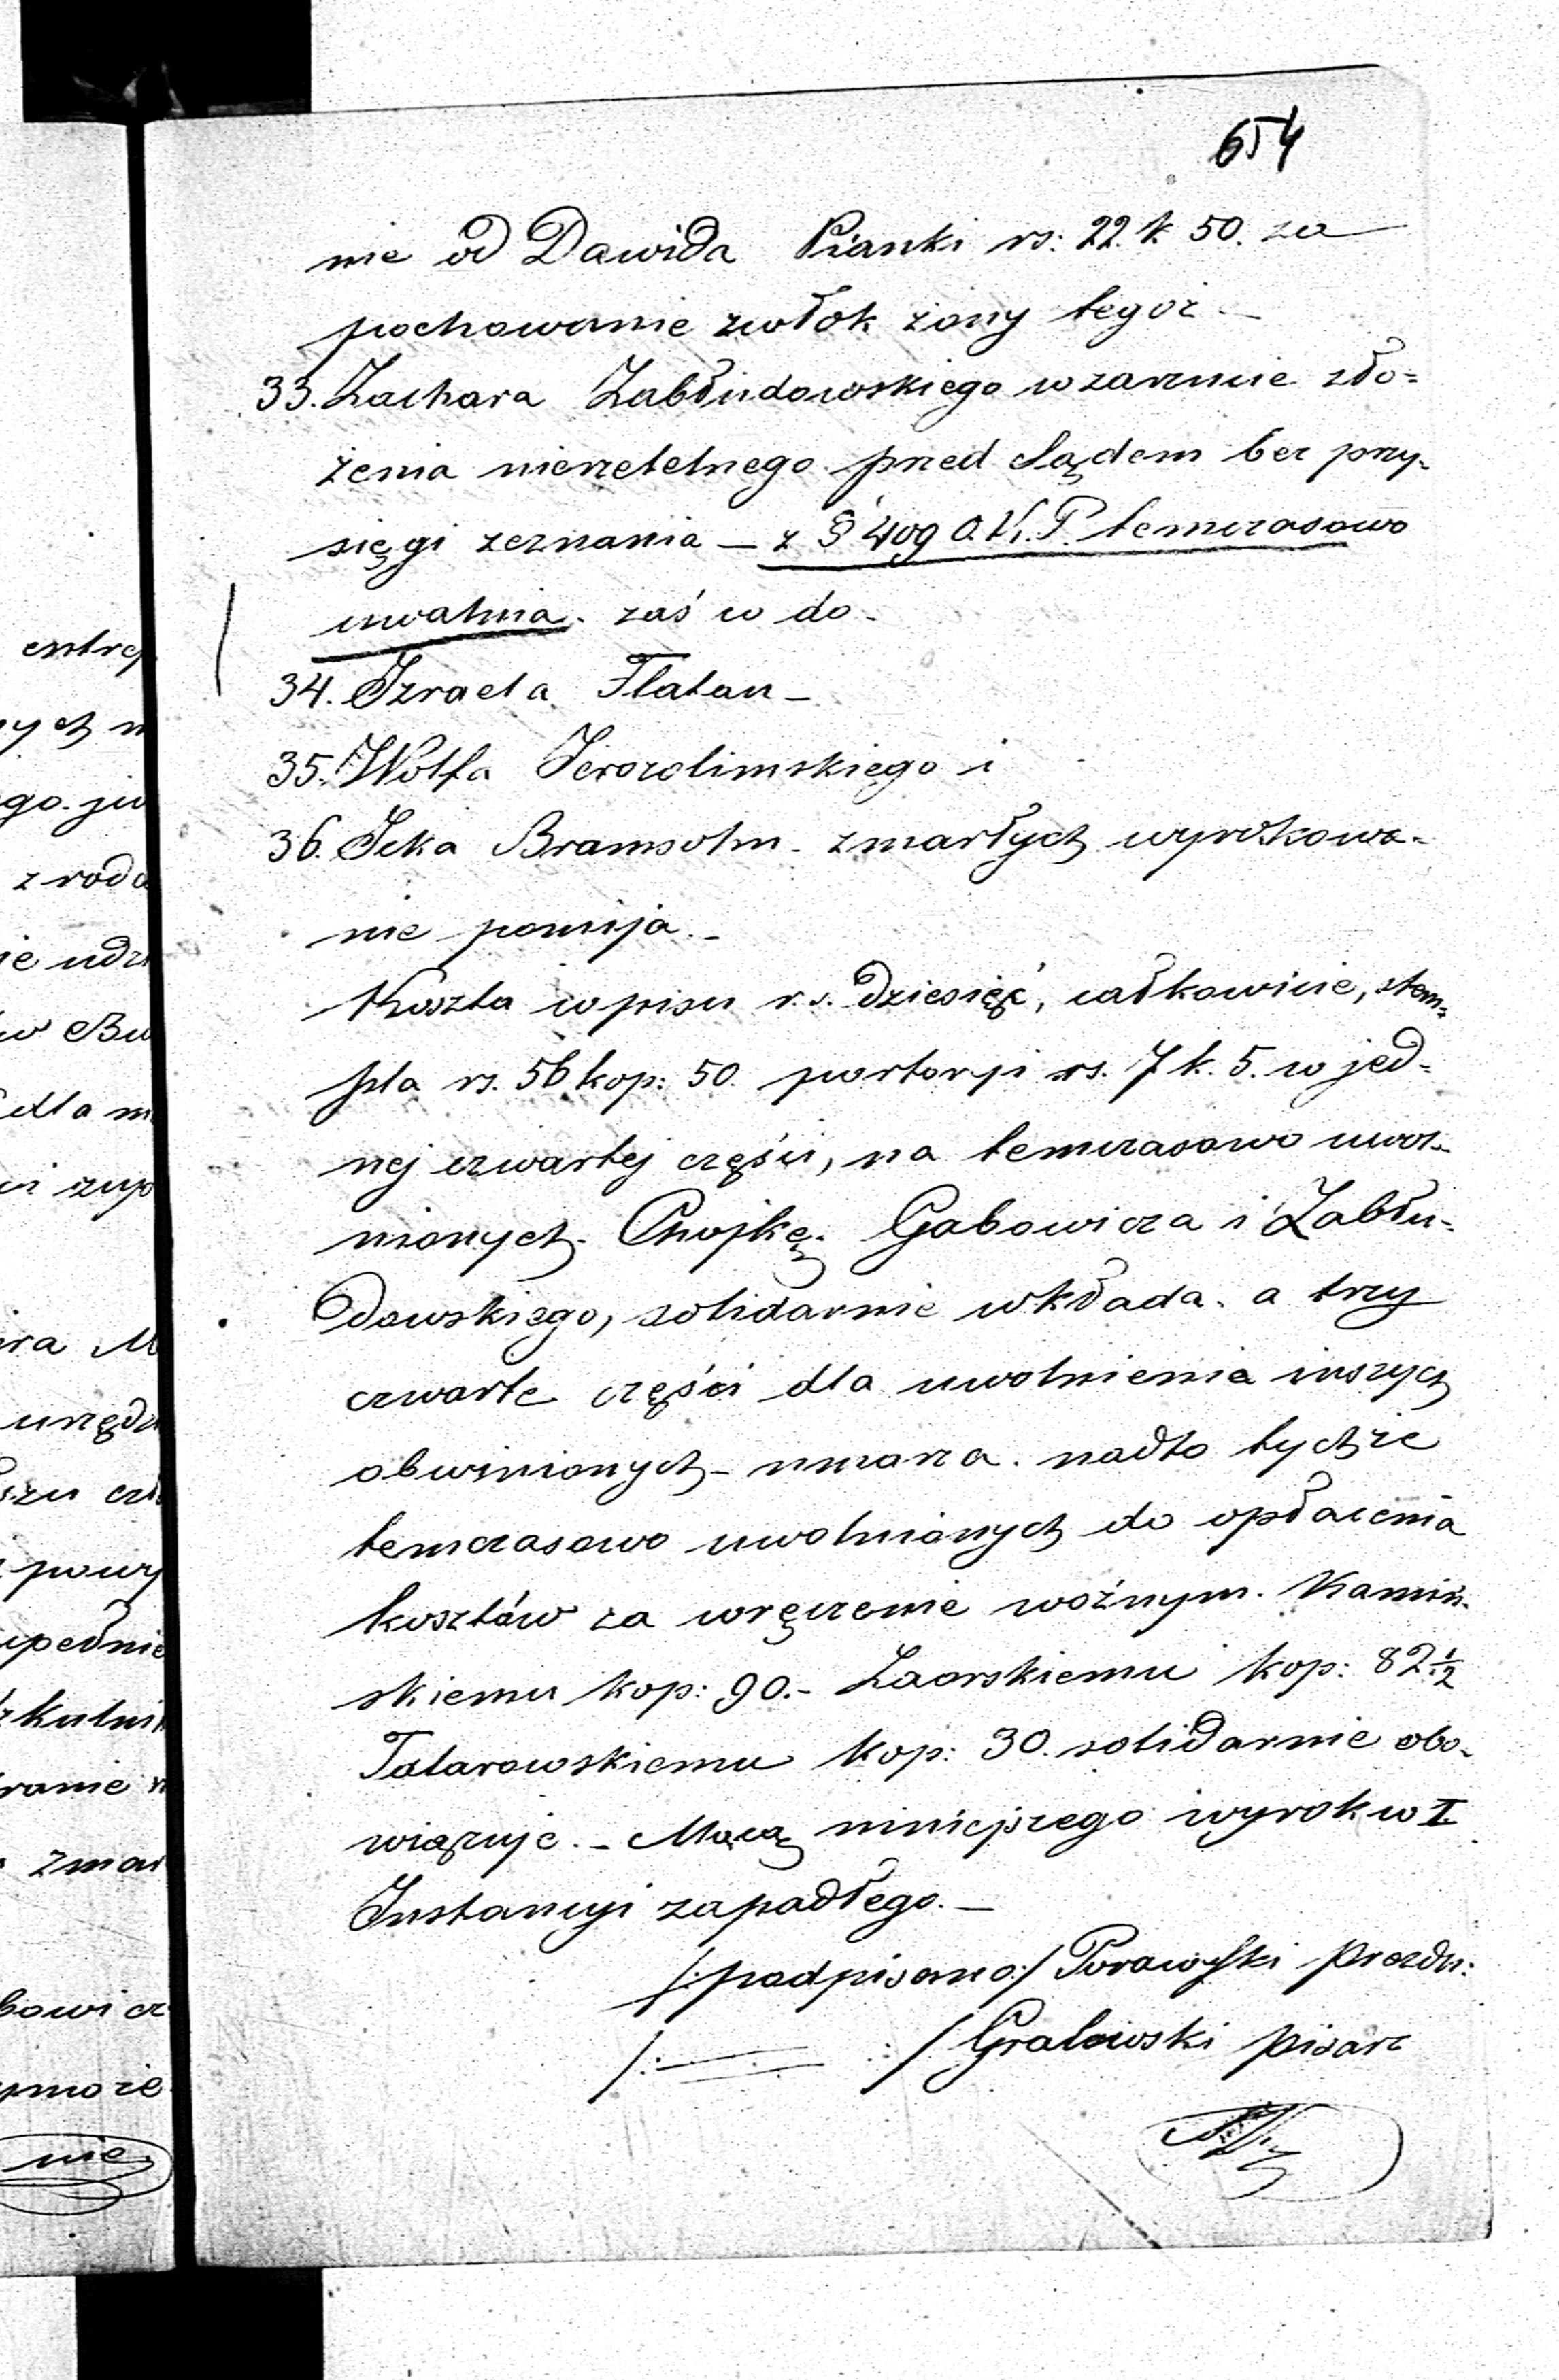 654
nie od Dawida Pianki rs: 22. k 50. za
pochowanie zwłok żony tegoż –
33. Zachara Zabłudowskiego w zarzucie zło=
żenia nierzetelnego przed Sądem bez przy-
sięgi zeznania – z § 409 O.K.P. temczasowo
uwalnia. zaś w do-
34. Izraela Flatau –
35. Wolfa Jerozolimskiego i
36. Icka Bramsohn – zmarłych wyrokowa-
nie pomija. –
Koszta wpisu r.s. dziesięć, całkowicie, stem=
pla rs. 56 kop: 50. portorji rs. 7 k. 5. w jed=
nej czwartej części, na temczasowo uwol-
nionych – Chojkę, Gabowicza i Zabłu-
dowskiego, solidarnie wkłada. a trzy
czwarte części dla uwolnienia inszych
obwinionych – umarza. nadto tychże
temczasowo uwolnionych do opłacenia
kosztów za wręczenie woźnym. Kamiń-
skiemu kop: 90. – Zaorskiemu kop: 82 ½
Tatarowskiemu kop: 30. solidarnie obo-
wiązuje. – Mocą niniejszego wyroku w I.
Instancyi zapadłego. –
/:podpisano:/ Porawski Prezdu:
/: — :/ Grabowski Pisarz
estrep
ych n
go. ju
z rodo
ie udzi
w Bu
dla m
ci zup
ira M
urzędu
szu czł
powy
upełnie
szkulni
ranie n
zmar
bowicz
pmoże
nie